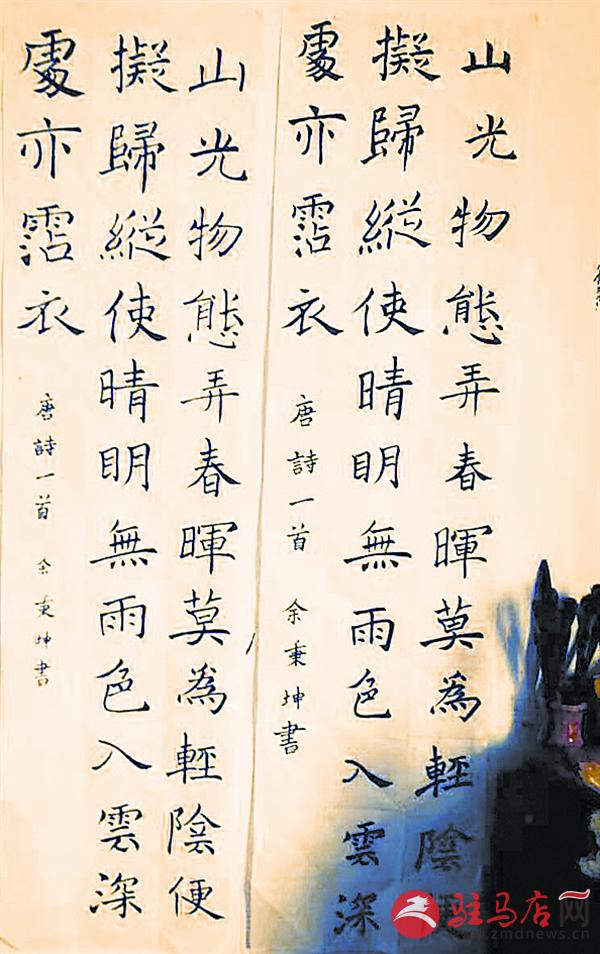 山光物態弄春暉莫為輕陰
擬歸縱使晴眀無雨色入雲深
處亦霑衣
唐詩一首 余秉坤書
山光物態弄春暉莫為輕陰便
擬歸縱使晴眀無雨色入雲深
處亦霑衣
唐詩一首 余秉坤書
驻马店网
www.zmdnews.cn